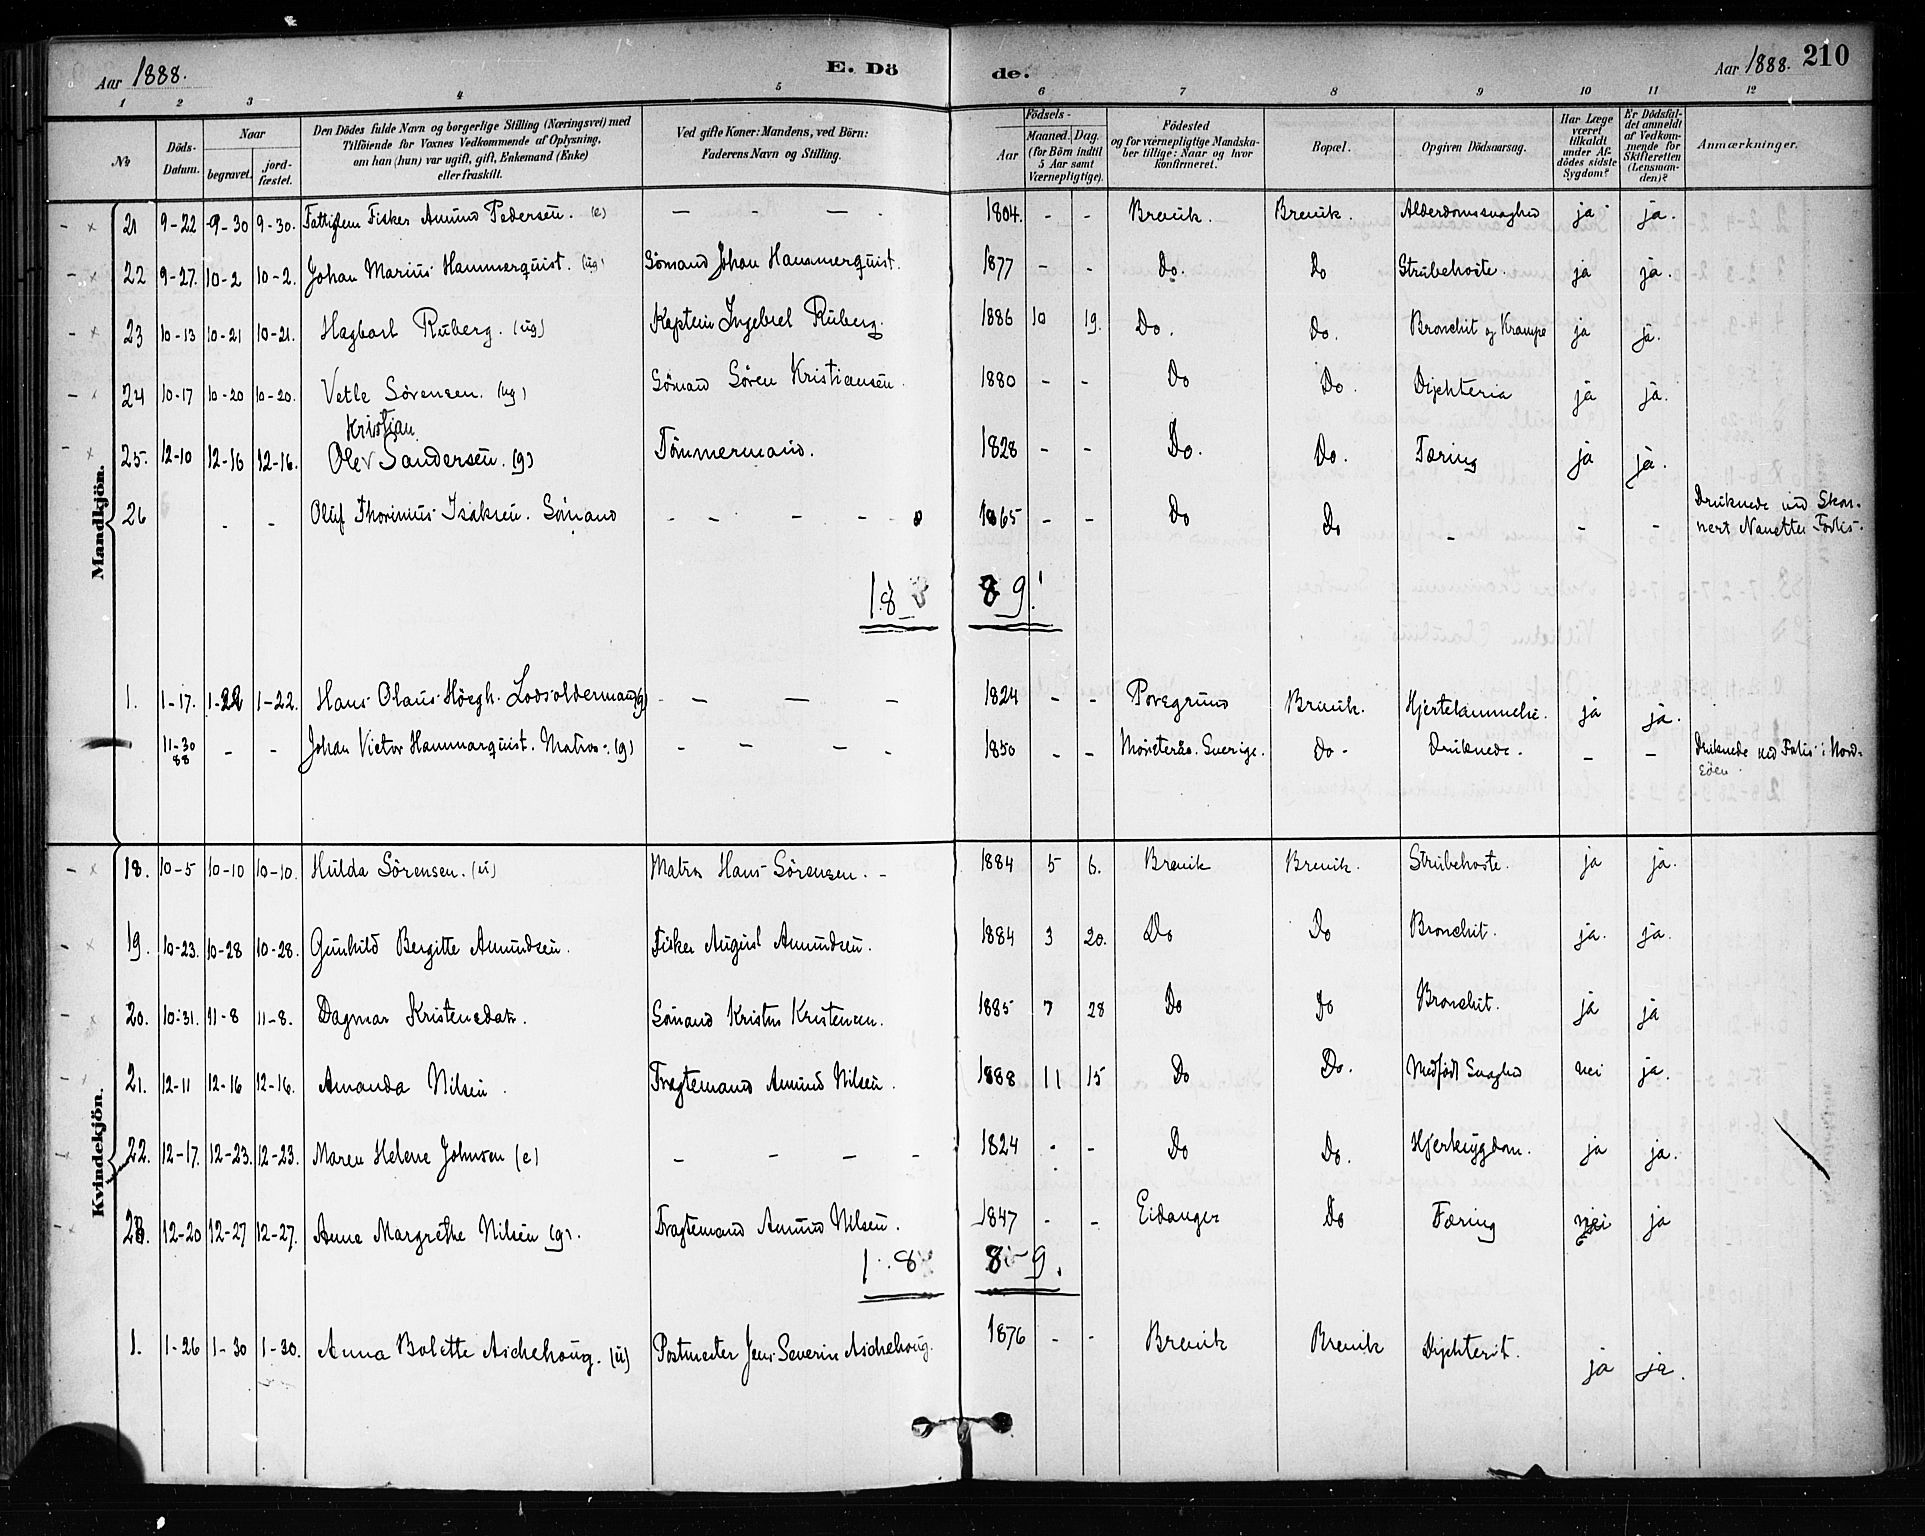 Aar 1888.
E. Dö
de.
Aar 1888. 210
1 2 3 4 5 6 7 8 9 10 11 12
No
Döds-Datum.
Naar
begravet.
jord-fæstet.
Den Dödes fulde Navn og borgerlige Stilling (Næringsvei) med
Tilföiende for Voxnes Vedkommende af Oplysning,
om han (hun) var ugift, gift, Enkemand (Enke)
eller fraskilt.
Ved gifte Koner: Mandens, ved Börn:
Faderens Navn og Stilling.
Födsels-
Aar
Maaned. Dag.
(for Börn indtil
5 Aar samt
Værnepligtige).
Födested
og for værnepligtige Mandska-
ber tillige: Naar og hvor
konfirmeret.
Bopæl.
Opgiven Dödsaarsag.
Har Læge
været
tilkaldt
under Af-
dödes sidste
Sygdom?
Er Dödsfal-
det anmeldt
af Vedkom-
mende for
Skifteretten
(Lensman-
den)?
Anmærkninger.
Mandkjön.
21 9-22 9-30 9-30. Fattiglem Fisker Amund Pedersen. (e) — - — . 1804. - - Brevik. Brevik. Alderdomssvaghed ja ja.
22 9-27. 10-2 10-2. Johan Marius Hammerquist. (ug) Sömand Johan Hammerquist. 1877 - - Do. Do Strubehoste. ja ja.
23 10-13 10-21 10-21. Hagbart Ruberg. (ug) Kaptein Ingebret Ruberg. 1886 10 19. Do. Do. Bronchit og Krampe ja ja.
24 10-17 10-20 10-20. Vetle Sørensen. (ug) Sömand Søren Kristiansen. 1880 - - Do Do. Diphteria ja ja.
Kristian
25. 12-10 12-16 12-16. Ole Sandersen. (g) Tömmermand. 1828 - - Do. Do. Tæring ja ja.
26 - - Oluf Thorinius Isaksen. Sömand - - - - 1865 - - Do Do - - - Druknede ved Skon-
nert Nanettes Forlis.
1 8 8 9!
1. 1-17. 1-22 1-22. Hans Olaus Höegh. Lodsoldermand (g) - — - 1824 - - Porsgrund Brevik. Hjertelammelse. ja ja.
11-30
88 - - Johan Victor Hammarquist. Matros. (g) - - - - 1850 - - Mönsterås. Sverige. Do - Druknede. - - Druknede ved Forlis i Nord-
söen.
Kvindekjön.
18. 10-5 10-10 10-10. Hulda Sörensen. (u) Matros Hans Sörensen. - 1884 5 6. Brevik Brevik. Strubehoste. ja ja.
19. 10-23. 10-28 10-28. Gunhild Bergitte Amundsen. Fisker August Amundsen. 1884 3 20. Do Do Bronchit. ja. ja.
20. 10-31. 11-8 11-8. Dagmar Kristensdatr. Sömand Kristen Kristensen. 1885 7 28 Do Do Bronchit. ja ja
21. 12-11 12-16 12-16. Amanda Nilsen. Fragtemand Amund Nilsen. 1888 11 15 Do Do. Medfödt Svaghed nei ja.
22. 12-17. 12-23. 12-23. Maren Helene Johnsen (e) - - - - 1824 - - Do Do. Hjertesygdom. ja ja.
23. 12-20 12-27 12-27. Anne Margrethe Nilsen (g). Fragtemand Amund Nilsen. 1847 - - Eidanger Do Tæring nei ja
1 8 8 9.
1. 1-26 1-30 1-30. Anna Bolette Aschehoug. (u) Postmester Jens Severin Aschehoug. 1876 - - Brevik Brevik Diphterit. ja ja.